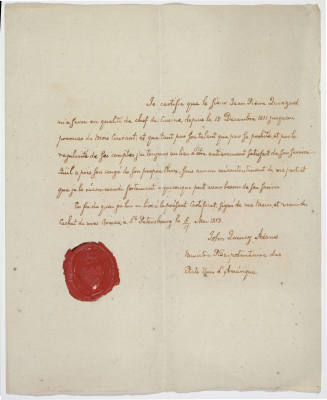 Je certifie que le Sieur Jean Pierre
m'a servi en qualité de chef de Cuisine, depuis le 12 Decembre 1811 jusqu'au
premier du Mois Courant: et que tant par son talent que par sa probité, et par la
regularité de ses comptes, j'ai toujours eu lieu d'être entierement satisfait de son service
Qu'il a pris son congé de son propre sans aucun mécontentement de ma part et
que je le recommande fortement à quiconque peut avoir besoin de son service
En foi de quoi je lui ai livré le présent Certificat, signé de ma Main, et muni du
Cachet de mes Armes, à St. Petersbourg le Mai 1813.
John Quincy Adams
Ministre Plenipotentiaire des
Etats Unis d'Amérique